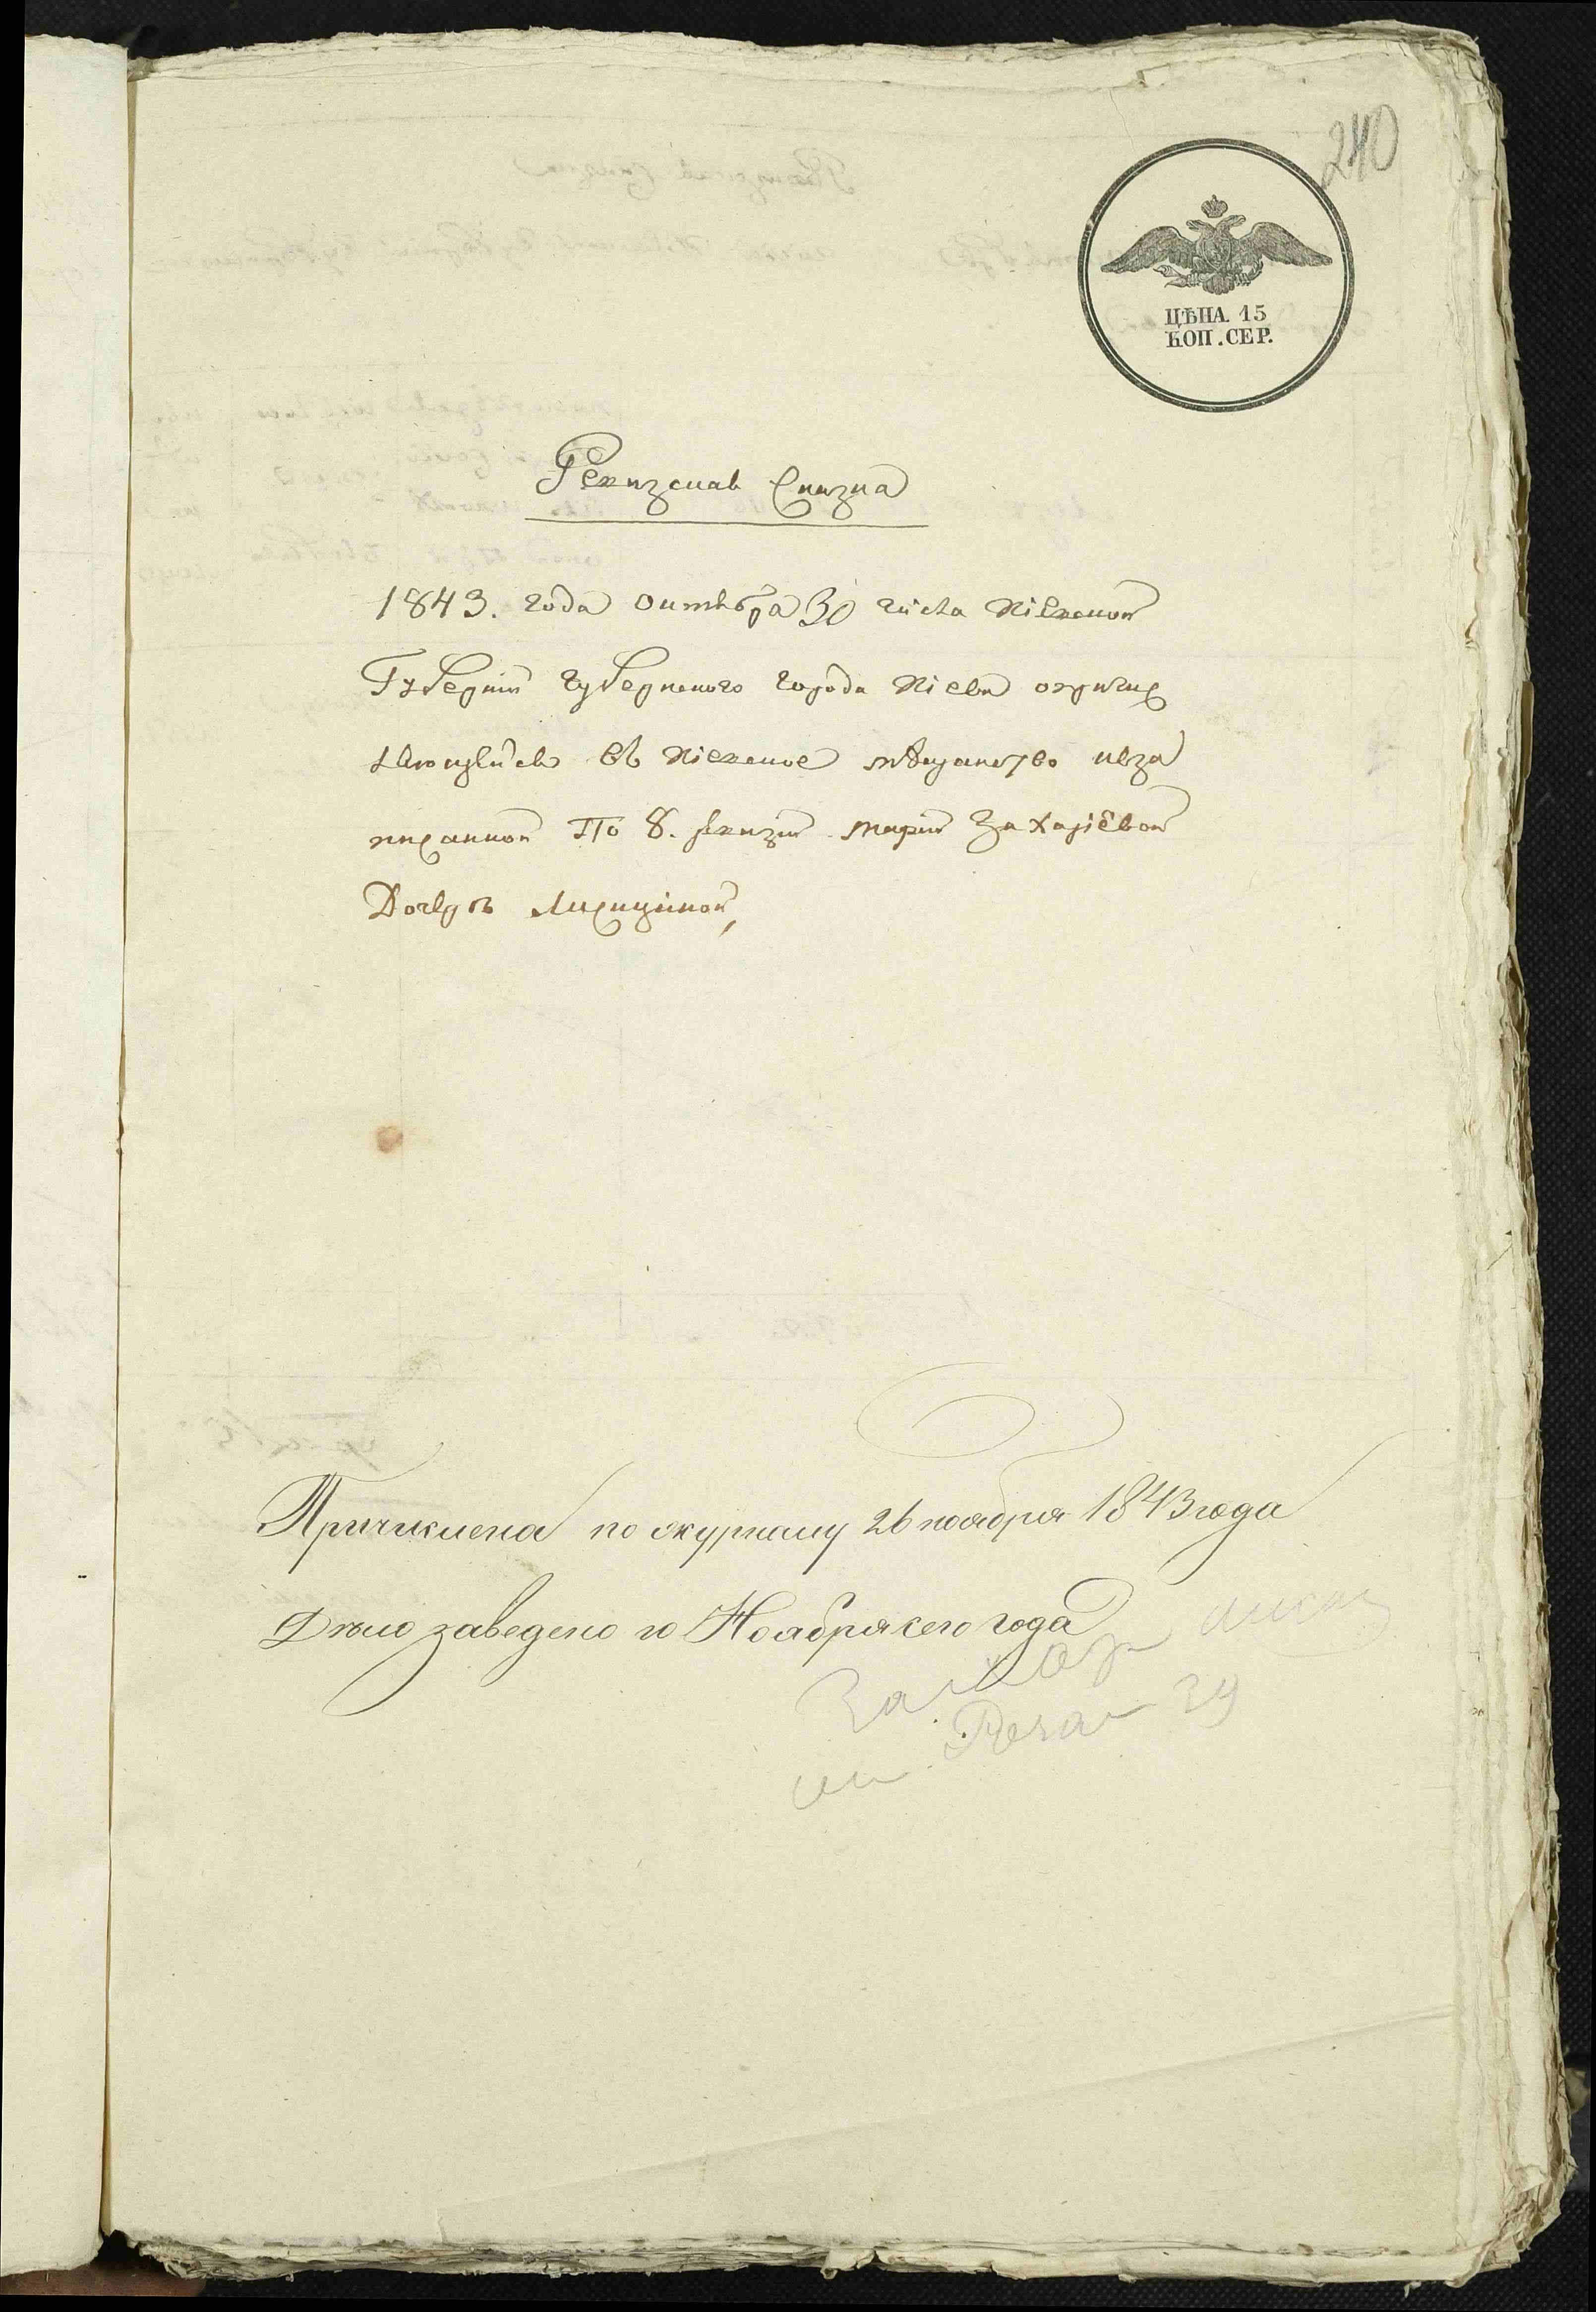 240
ЦѢНА 15
КОП. СЕР.
Ревизская Сказка
1843. года октября 30 числа Кіевской
Губерніи губернского города Кіева о причис
ляющейся въ Кіевское мѣщанство неза
писанной По 8. ревизіи Маріи Захаріевой
Дочери
Причислена по журналу 26 ноября 1843 года
Дѣло заведено 10 Ноября сего года